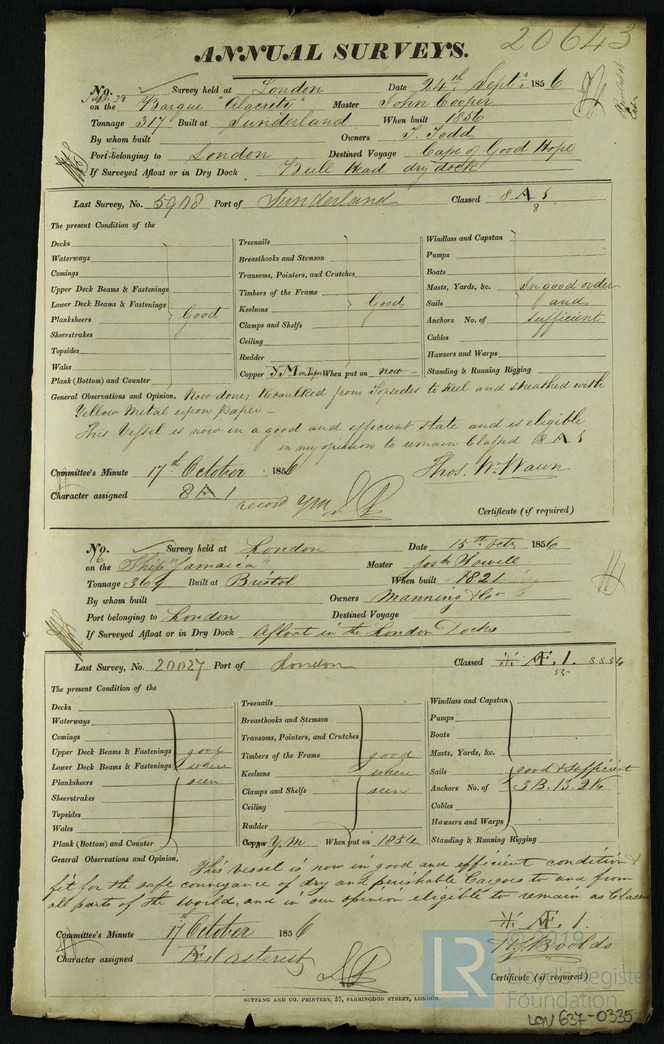 20643
ANNUAL SURVEYS.
No. Survey held at London Date 24th Septr 1856
on the Barque "Alacrity" Master John Cooper
Tonnage 317 Built at Sunderland When built 1856
By whom built Owners T. Todd
Port belonging to London Destined Voyage Cape of Good Hope
If Surveyed Afloat or in Dry Dock Bull Head dry dock
Last Survey, No. 5908 Port of Sunderland Classed 8 A 1
8
The present Condition of the
Decks
Waterways
Comings
Upper Deck Beams & Fastenings
Lower Deck Beams & Fastenings
Planksheers Good
Sheerstrakes
Topsides
Wales
Plank (Bottom) and Counter
Treenails
Breasthooks and Stemson
Transoms, Pointers, and Crutches
Timbers of the Frame
Keelsons Good
Clamps and Shelfs
Ceiling
Rudder
Copper Y.M. on paper When put on now
Windlass and Capstan
Pumps
Boats
Masts, Yards, &c. In good order
Sails and
Anchors No. of sufficient
Cables
Hawsers and Warps
Standing & Running Rigging
General Observations and Opinion, Now done; Recaulked from Topsides to keel and sheathed with
Yellow Metal upon paper
This Vessel is now in a good and efficient state and is eligible
in my opinion to remain Classed 8 A 1
Committee's Minute 17th October 1856 Thos. Wm. Wawn
Character assigned 8 A 1 record YM
Certificate (if required)
No. Survey held at London Date 15th Octr 1856
on the Ship "Jamaica" Master Josh Howell
Tonnage 364 Built at Bristol When built 1821
By whom built Owners Manning & Co
Port belonging to London Destined Voyage
If Surveyed Afloat or in Dry Dock Afloat in the London Docks
Last Survey, No. 20027 Port of London Classed Æ 1.
The present Condition of the
Decks
Waterways
Comings
Upper Deck Beams & Fastenings good
Lower Deck Beams & Fastenings where
Planksheers seen
Sheerstrakes
Topsides
Wales
Plank (Bottom) and Counter
Treenails
Breasthooks and Stemson
Transoms, Pointers, and Crutches
Timbers of the Frame good
Keelsons where
Clamps and Shelfs seen
Ceiling
Rudder
Copper Y.M When put on 1854
Windlass and Capstan
Pumps
Boats
Masts, Yards, &c.
Sails good & sufficient
Anchors No. of 3 B. 1 S. 2 K
Cables
Hawsers and Warps
Standing & Running Rigging
General Observations and Opinion, This vessel is now in good and efficient condition &
fit for the safe conveyance of dry and perishable Cargoes to and from
all parts of the World, and in our opinion eligible to remain as Classed
Æ 1.
Committee's Minute 17th October 1856
Character assigned Æ 1 asterisk
Certificate (if required)
SEYFANG AND CO. PRINTERS, 57, FARRINGDON STREET, LONDON.
LR
©2019
Lloyd's Register
Foundation
LON 637-0335